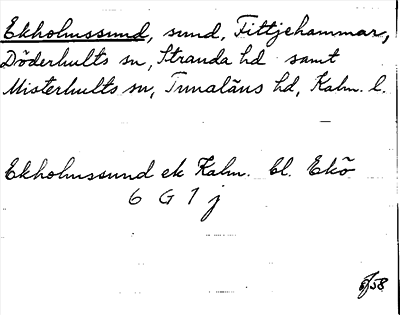 Ekholmssund, sund, Fittjehammar,
Döderhults sn, Stranda hd samt
Misterhults sn, Tunaläns hd, Kalm. l.
Ekholmssund ek Kalm. bl. Ekö
6 G 1 j
6/58